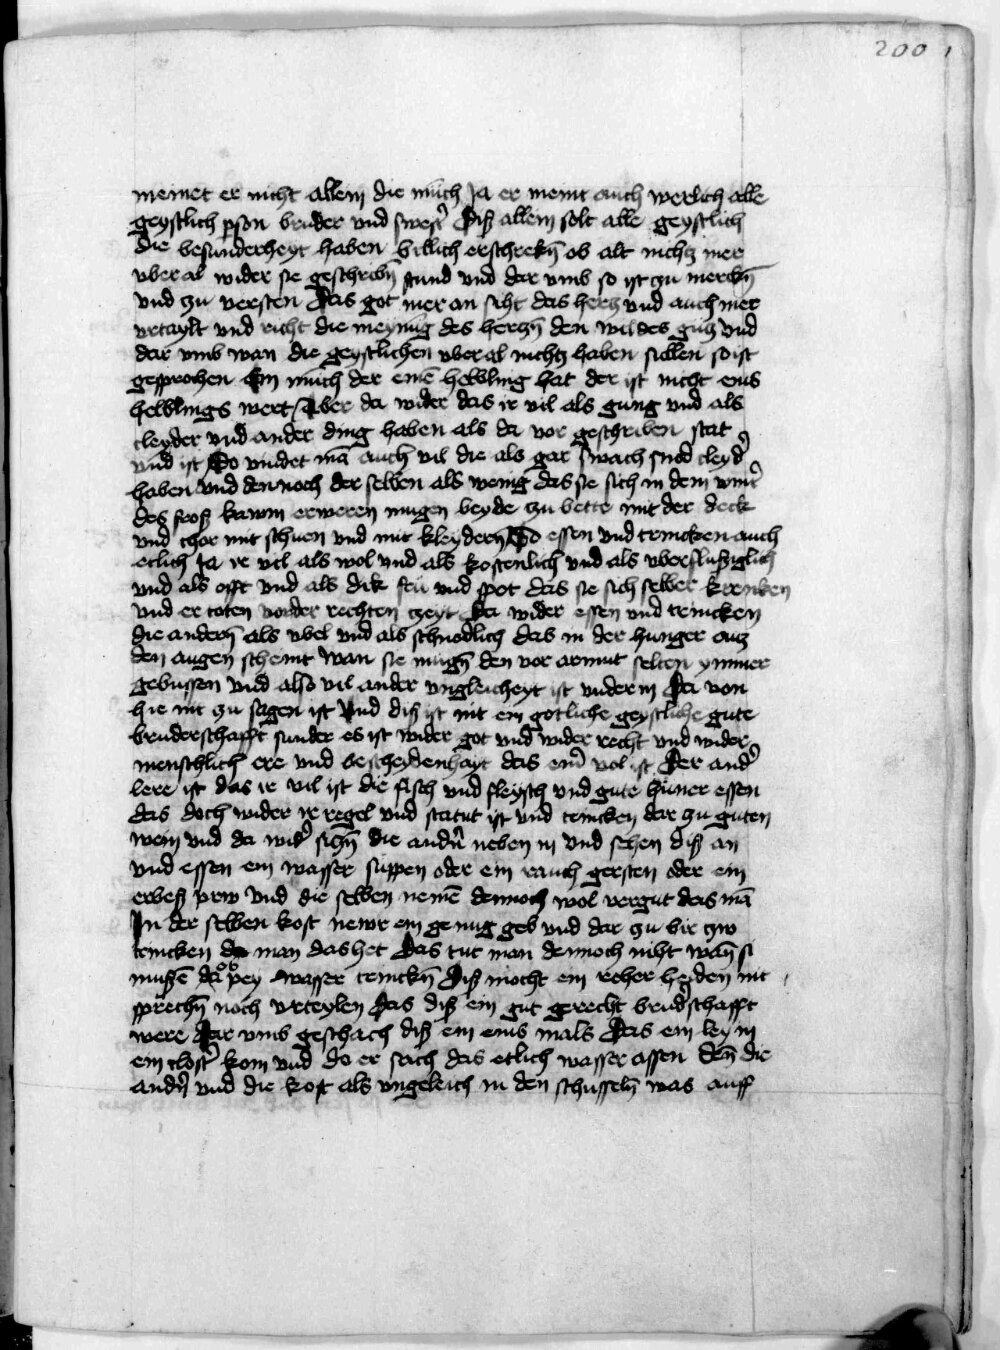 200
meinet er nicht allein die münch Ja er meint auch werlich alle
geystlich pson bruder vnd swest' Diß allein solt alle geystlich
die besunderheyt haben billich erschrekn̄ ob alt nichtz mer
vberal wider sie geschribn̄ stund vnd dar vmb so ist zu merckn̄
vnd zu versten Das got mer an siht das hertz vnd auch mer
vrtaylt vnd richt die meynūg des hertzn̄ den wil des gutz vnd
dar vmb wan die geystlichen vberal nichtz haben sullen so ist
gesprochen Ein münch der eine̅ helbling hat der ist nicht eins
helblings wert Aber da wider das ir vil als gnug vnd als
cleyder vnd ander ding haben als da vor geschriben stat
vnd ist So vindet ma̅ auch vil die als gar swach snod cleyd'
haben vnd dennoch der selben als wenig das sie sich in dem wint'
des frost kawm erweren mugen beyde zu bette mit der deck
vnd chor mit schuen vnd mit kleydern So essen vnd trincken auch
etlich Ja ir vil als wol vnd als kostenlich vnd als vberflußiglich
vnd als offt vnd als dik fru vnd spot das sie sich selber krenken
vnd er toten vor der rechten zeyt Da wider essen vnd trincken
die andern̄ als vbel vnd als schnodlich das in der hunger auz
den augen scheint wan sie mugn̄ den vor armut selten ymmer
gebussen vnd also vil ander vngleicheyt ist vnder in Da von
hie nit zu sagen ist Vnd diß ist nit ein gotliche geystliche gute
bruderschafft sunder es ist wider got vnd wider recht vnd wider
menschlich ere vnd bescheydenhayt das eim̄ vol ist Der and'
lere ist das ir vil ist die fisch vnd fleysch vnd gute hüner essen
das doch wider ir regel vnd statut ist vnd trincken dar zu guten
wein vnd da wid' sitzn̄ die andn̄ neben in vnd sehen diß an
vnd essen ein wasser suppen oder ein rauch gersten oder ein
erbeß prw vnd die selben neme̅ dennoch wol vergut das ma̅
In der selben kost newr ein genug geb vnd dar zu bir zw
trincken do man das het Das tut man dennoch niht wan̄ si
mußē da pey wasser trinckn̄ Diß mocht ein reher heyden nit
sprechn̄ noch vrteylen Das diß ein gut gerecht brud'schafft
were Dar vmb geschach diß ein eins mals Das ein ley in
ein clost' kom vnd do er sach das etlich wasser assen den̄ die
andn̄ vnd die kost als vngeleich in den schusseln̄ was auff